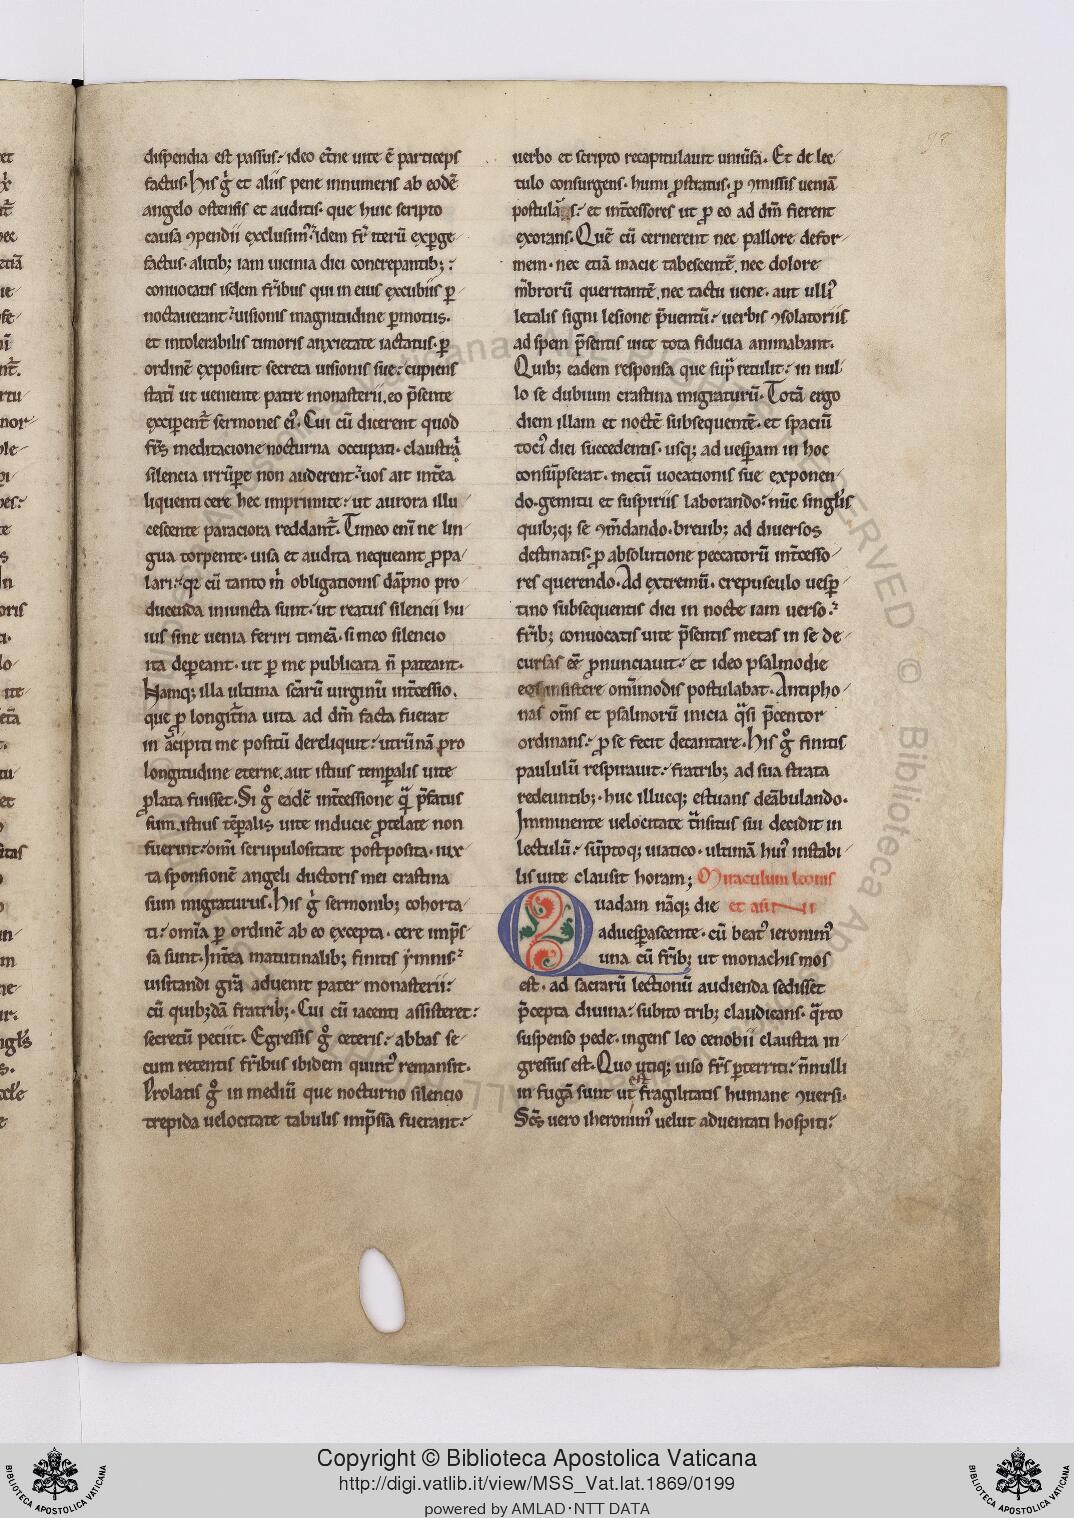 dispendia est passus. ideo et̄ne uite ē particeps
factus. His g̊ et aliis pene innumeris ab eodē
angelo ostensis et auditis. que huic scripto
causa ꝯpendii exclusim̄. idem fr̄ iterū exꝑge
factus. alitib; iam uicinia diei concrepantib;.
conuocatis isdem fr̄ibus qui in eius excubiis ꝑ
noctauerant. uisionis magnitudine ꝑmotus.
et intolerabilis timoris anxietate iactatus. ꝑ
ordinē exposuit secreta uisionis sue. cupiens
statī ut ueniente patre monasterii. eo p̄sente
exciꝑent̄ sermones eī. Cui cū dicerent quod
fr̄s meditacione nocturna occupati. claustrā
silencia irrūꝑe non auderent. uos ait int̄ea
liquenti cere hec imprimite. ut aurora illu
cescente paraciora reddant̄. Timeo enī ne lin
gua torpente. uisa et audita nequeant ꝓpa
lari. q cū tanto m̄ obligationis dāpno pro
ducenda iniuncta sunt. ut reatus silencii hu
ius sine uenia feriri timeā. si meo silencio
ita deꝑeant. ut ꝑ me publicata n̄ pateant.
Namq; illa ultima sc̄arū uirginū int̄cessio.
que ꝓ longit̄na uita ad dm̄ facta fuerat
in ācipiti me positū dereliquit. utrū nā pro
longitudine eterne. aut istius temꝑalis uite
ꝓlata fuisset. Si g̊ eadē int̄cessione q̄ p̄fatus
sum. istius tēꝑalis uite inducie ꝓtelate non
fuerint. om̄i scrupulositate postposita. iux
ta sponsionē angeli ductoris mei crastina
sum migraturus. His g̊ sermonib; cohorta
ti. om̄ia ꝑ ordinē ab eo excepta. cere imp̄s
sa sunt. Int̄ea matutinalib; finitis ymnis.
uisitandi grā aduenit pater monasterii.
cū quib;dā fratrib;. Cui cū iacenti assisteret.
secretū peciit. Egressis g̊ ceteris. abbas se
cum retentis fr̄ibus ibidem quint᷒ remansit.
Prolatis g̊ in mediū que nocturno silencio
trepida uelocitate tabulis imp̄ssa fuerant.
uerbo et scripto recapitulauit uniūsa. Et de lec
tulo consurgens. humi ꝓstratus. ꝓ ꝯmissis ueniā
et int̄cessores ut ꝓ eo ad dm̄ fierent
exorans. Quē cū cernerent nec pallore defor
mem. nec etiā macie tabescentē. nec dolore
m̄brorū queritantē. nec tactu uene. aut ulli᷒
letalis signi lesione p̄uentū. uerbis ꝯsolatoriis
ad spem p̄sentis uite tota fiducia animabant.
Quib; eadem responsa que sup̄ retulit. in nul
lo se dubium crastina migraturū. Totā ergo
diem illam et noctē subsequentē. et spaciū
toci᷒ diei succedentis. usq; ad uesꝑam in hoc
consūpserat. metū uocationis sue exponen
do. gemitu et suspiriis laborando. nūc singl̄is
quib;q; se ꝯm̄dando. breuib; ad diuersos
destinatis. ꝓ absolutione peccatorū int̄cesso
res querendo. Ad extremū. crepusculo uesꝑ
tino subsequentis diei in nocte iam uerso.
fr̄ib; conuocatis uite p̄sentis metas in se de
cursas eē ꝓnunciauit. et ideo psalmodie
eos insistere omīmodis postulabat. Antipho
nas om̄s et psalmorū inicia q̄si p̄centor
ordinans. ꝓ se fecit decantare. His g̊ finitis
paululū respirauit. fratrib; ad sua strata
redeuntib;. huc illucq; estuans deābulando.
Imminente uelocitate t̄nsitus sui decidit in
lectulū. sūptoq; uiatico. ultimā hui᷒ instabi
lis uite clausit horam; Miraculum leonis
Quadam nāq; die et asini
aduesꝑascente. cū beat᷒ ieronim᷒
una cū fr̄ib; ut monachis mos
est. ad sacrarū lectionū audienda sedisset
p̄cepta diuina. subito trib; claudicans. q̄rto
suspenso pede. ingens leo cenobii claustra in
gressus est. Quo utiq; uiso fr̄s ꝑterriti. n̄nulli
in fugā sunt ut est fragilitatis humane ꝯuersi.
Sc̄s uero iheronim᷒ uelut aduentati hospiti.
Copyright © Biblioteca Apostolica Vaticana
http://digi.vatlib.it/view/MSS_Vat.lat.1869/0199
powered by AMLAD·NTT DATA
BIBLIOTECA APOSTOLICA VATICANA
BIBLIOTECA APOSTOLICA VATICANA